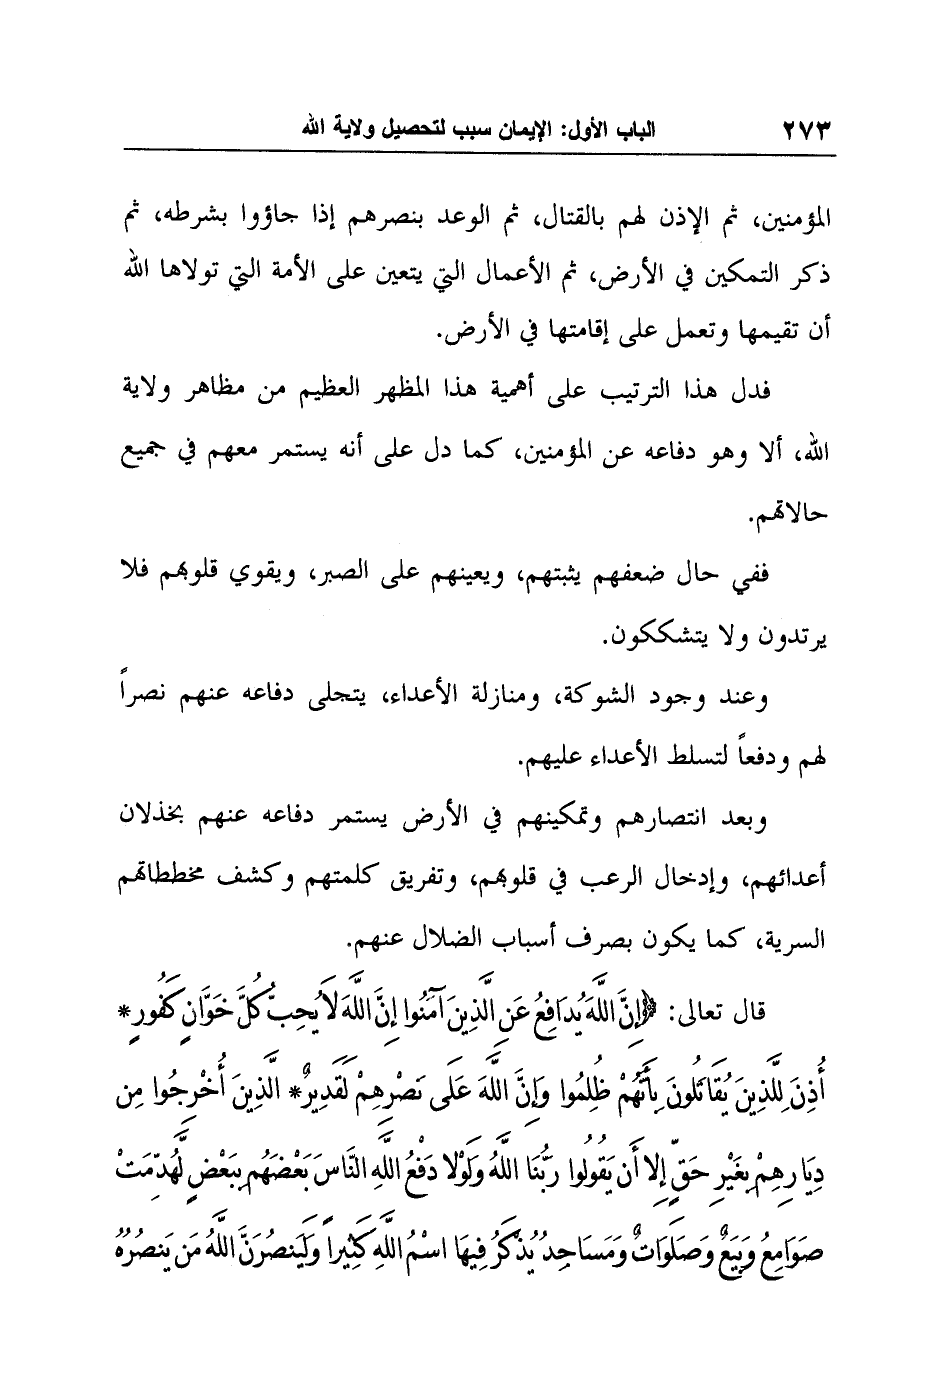 ٢٧٣ الباب الأول: الإيمان سبب لتحصيل ولاية الله
المؤمنين، ثم الإذن لهم بالقتال، ثم الوعد بنصرهم إذا جاؤوا بشرطه، ثم
ذكر التمكين في الأرض، ثم الأعمال التي يتعين على الأمة التي تولاها الله
أن تقيمها وتعمل على إقامتها في الأرض.
فدل هذا الترتيب على أهمية هذا المظهر العظيم من مظاهر ولاية
الله، ألا وهو دفاعه عن المؤمنين، كما دل على أنه يستمر معهم في جميع
حالاتهم.
ففي حال ضعفهم يثبتهم، ويعينهم على الصبر، ويقوي قلوبهم فلا
يرتدون ولا يتشككون.
وعند وجود الشوكة، ومنازلة الأعداء، يتجلى دفاعه عنهم نصراً
لهم ودفعاً لتسلط الأعداء عليهم.
وبعد انتصارهم وتمكينهم في الأرض يستمر دفاعه عنهم بخذلان
أعدائهم، وإدخال الرعب في قلوبهم، وتفريق كلمتهم وكشف مخططاتهم
السرية، كما يكون بصرف أسباب الضلال عنهم.
قال تعالى: ﴿إِنَّ اللَّهَ يُدَافِعُ عَنِ الَّذِينَ آمَنُوا إِنَّ اللَّهَ لَا يُحِبُّ كُلَّ خَوَّانٍ كَفُورٍ *
أُذِنَ لِلَّذِينَ يُقَاتَلُونَ بِأَنَّهُمْ ظُلِمُوا وَإِنَّ اللَّهَ عَلَى نَصْرِهِمْ لَقَدِيرٌ * الَّذِينَ أُخْرِجُوا مِن
دِيَارِهِمْ بِغَيْرِ حَقٍّ إِلا أَن يَقُولُوا رَبُّنَا اللَّهُ وَلَوْلا دَفْعُ اللَّهِ النَّاسَ بَعْضَهُم بِبَعْضٍ لَّهُدِّمَتْ
صَوَامِعُ وَبِيَعٌ وَصَلَوَاتٌ وَمَسَاجِدُ يُذْكَرُ فِيهَا اسْمُ اللَّهِ كَثِيراً وَلَيَنصُرَنَّ اللَّهُ مَن يَنصُرُهُ